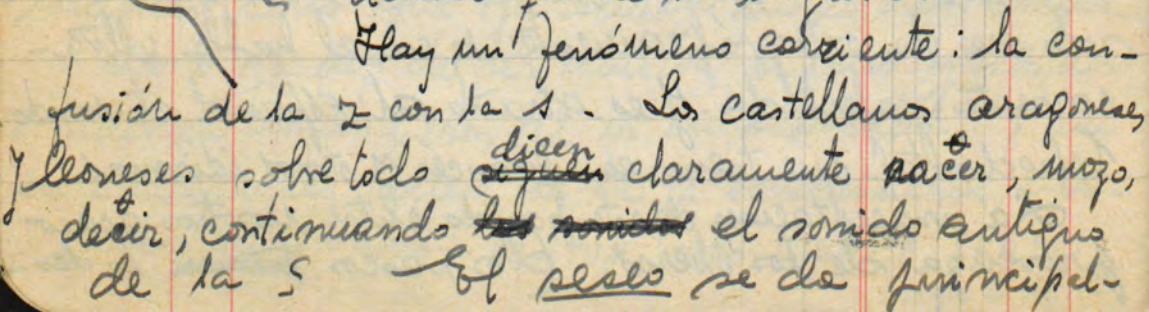 Hay un fenómeno corriente: la con-
fusión de la z con la s. Los castellanos aragoneses
y leoneses sobre todo siguen dicen claramente nacer, mozo,
decir, continuando los sonidos el sonido antiguo
de la ç El seseo se da principal-